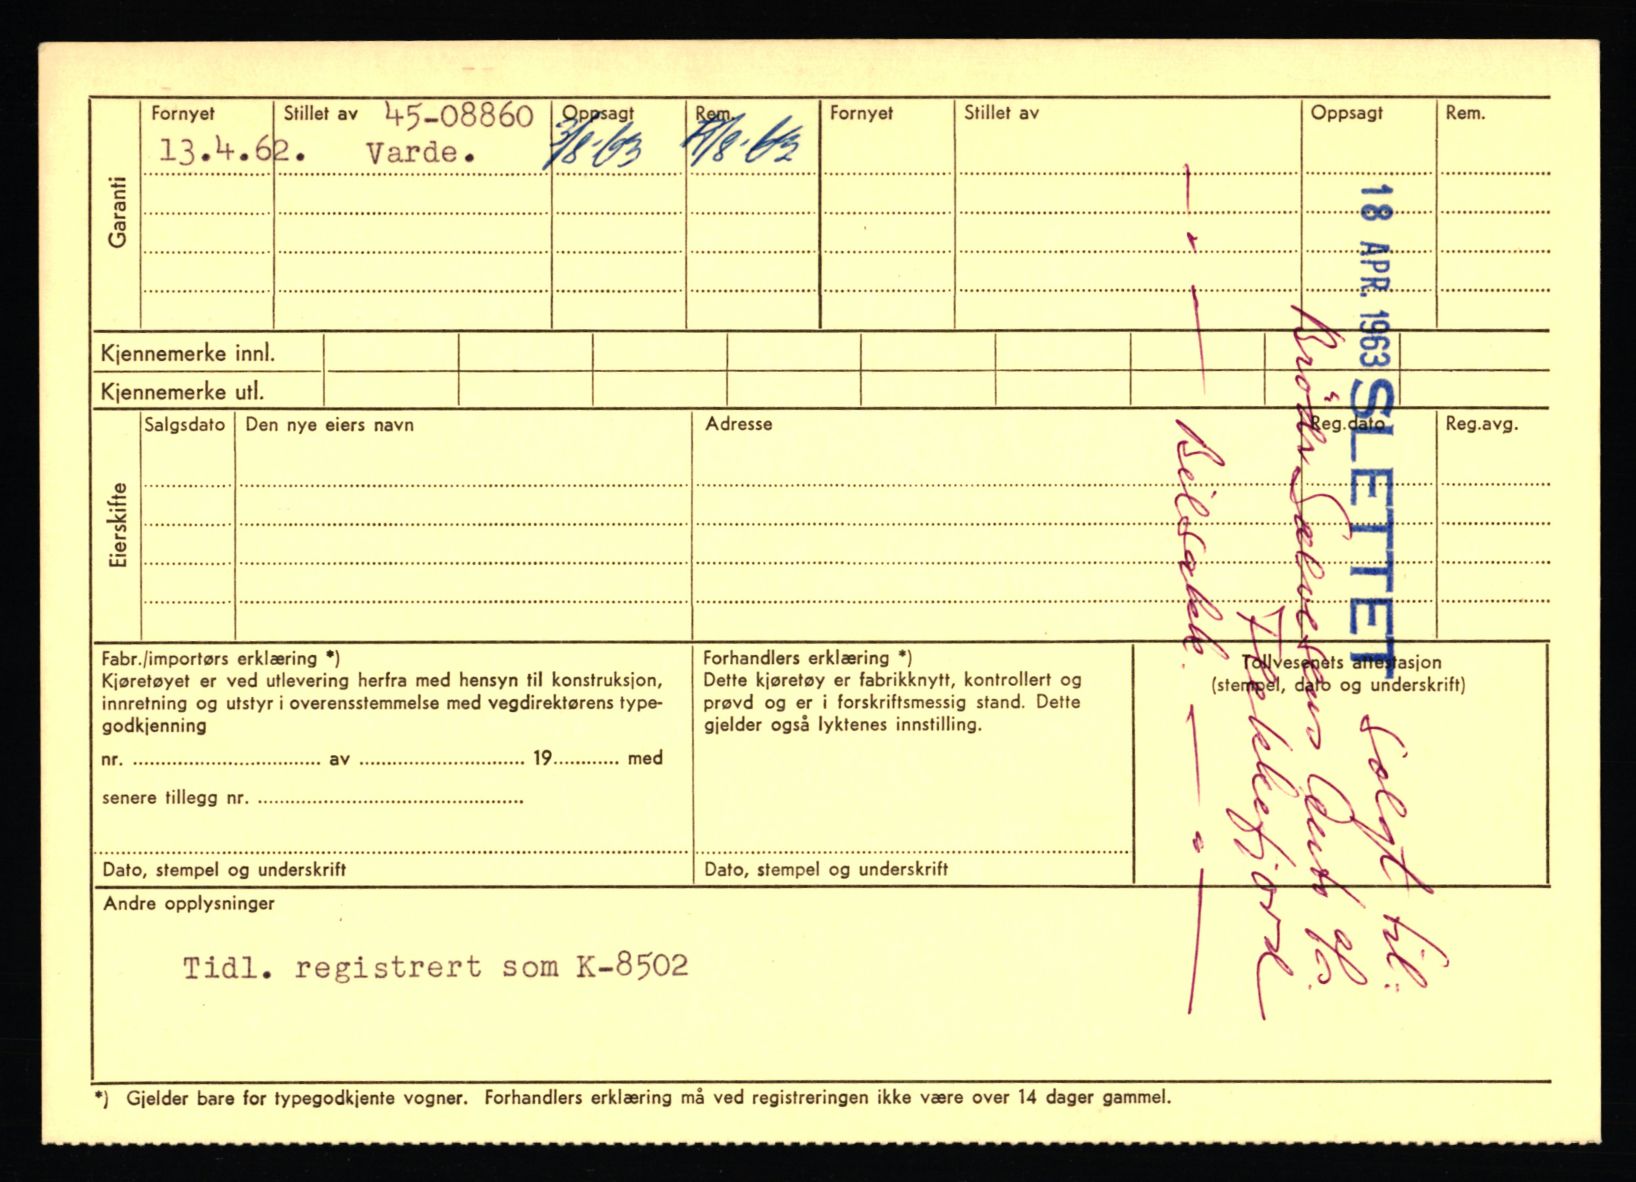 Fornyet Stillet av 45-08860 Oppsagt Rem. Fornyet Stillet av Oppsagt Rem.
13.4.62. Varde. /8-63 /8-63
Garanti
Kjennemerke innl.
Kjennemerke utl.
Salgsdato Den nye eiers navn Adresse Reg.dato Reg.avg.
Eierskifte
Fabr./importørs erklæring *)
Kjøretøyet er ved utlevering herfra med hensyn til konstruksjon,
innretning og utstyr i overensstemmelse med vegdirektørens type-
godkjenning
nr. .................... av .................... 19............ med
senere tillegg nr. ....................
Dato, stempel og underskrift
Forhandlers erklæring *)
Dette kjøretøy er fabrikknytt, kontrollert og
prøvd og er i forskriftsmessig stand. Dette
gjelder også lyktenes innstilling.
Dato, stempel og underskrift
Tollvesenets attestasjon
(stempel, dato og underskrift)
18 APR. 1963 SLETTET
Solgt til:
Brödr.
Flekkefjord
Bilsakk.
Andre opplysninger
Tidl. registrert som K-8502
*) Gjelder bare for typegodkjente vogner. Forhandlers erklæring må ved registreringen ikke være over 14 dager gammel.